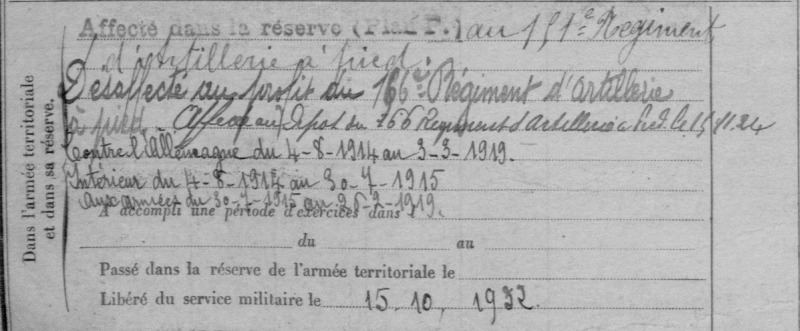 Dans l'armée territoriale
et dans sa réserve.
Affecté dans la réserve (Plan F.) au 151e Régiment
d'artillerie à pied.
Désaffecté au profit du 166e Régiment d'artillerie
à pied. Affecté au Dépôt du 166 Régiment d'artillerie à pied le 15.11.24
Contre l'Allemagne du 4-8-1914 au 3-3-1919.
Intérieur du 4-8-1914 au 30-7-1915
aux armées du 30-7-1915 au 26-2-1919.
A accompli une période d'exercices dans
du au
Passé dans la réserve de l'armée territoriale le
Libéré du service militaire le 15.10.1932.